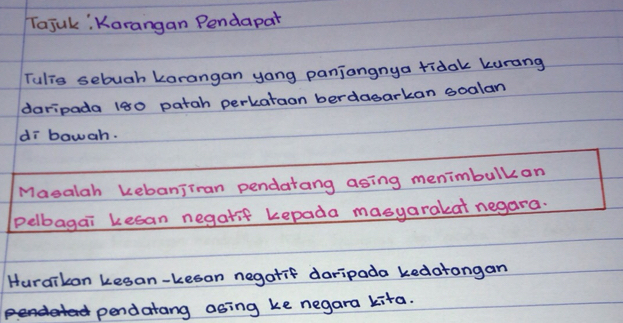 Tajuk : Karangan Pendapat
Tulis sebuah karangan yang panjangnya tidak kurang
daripada 180 patah perkataan berdasarkan soalan
di bawah.
Masalah kebanjiran pendatang asing menimbulkan
pelbagai kesan negatif kepada masyarakat negara.
Huraikan kesan-kesan negatif daripada kedatangan
pendatang asing ke negara kita.